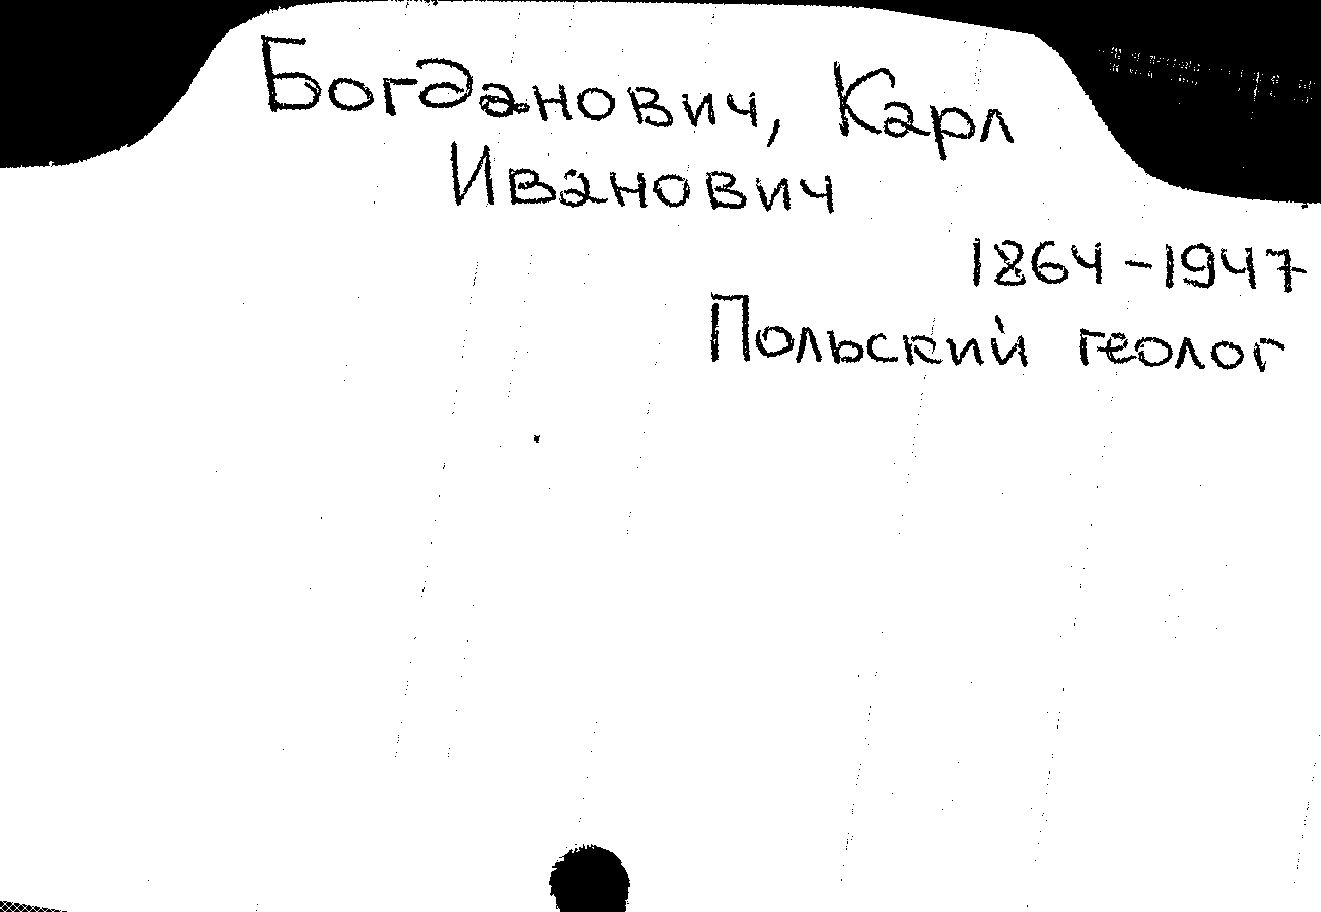 Богданович, Карл
Иванович
1864-1947
Польский геолог